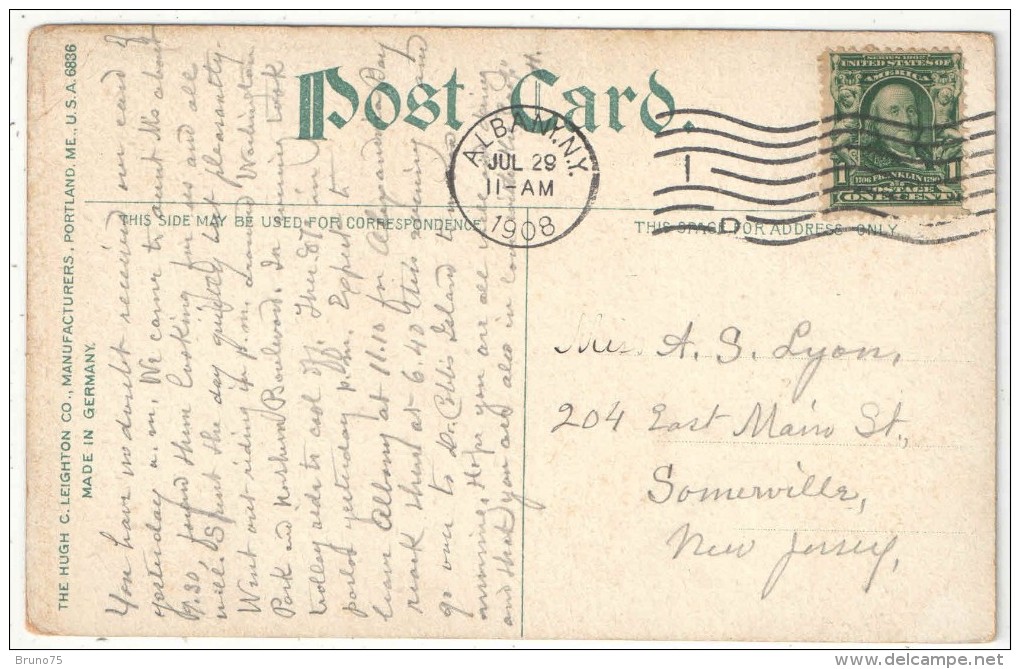 THE HUGH C. LEIGHTON CO., MANUFACTURERS, PORTLAND, ME., U.S.A. 6836
MADE IN GERMANY.
Post Card.
THIS SIDE MAY BE USED FOR CORRESPONDENCE
THIS SPACE FOR ADDRESS ONLY.
ALBANY, N.Y.
JUL 29
11-AM
1908
1
D
SERIES 1902
UNITED STATES OF
AMERICA
FRANKLIN
POSTAGE
1 1
ONE CENT
You have no doubt received our card of
yesterday a.m. We came to aunt M's about
found them looking for us and all
well. Spent the day quietly but pleasantly.
Went out riding in p.m. around Washington
Park and Northern Boulevard. In evening took
trolley ride to cool off. Ther. 87 in
yesterday p.m. Expect to
leave Albany at 11.10 for Alexandria Bay
reach there at 6.40 this evening and
go over to Island
Hope you are all
and that you are also
A. S. Lyon,
204 East Main St.,
Somerville,
New Jersey,
Bruno75
delcampe.net